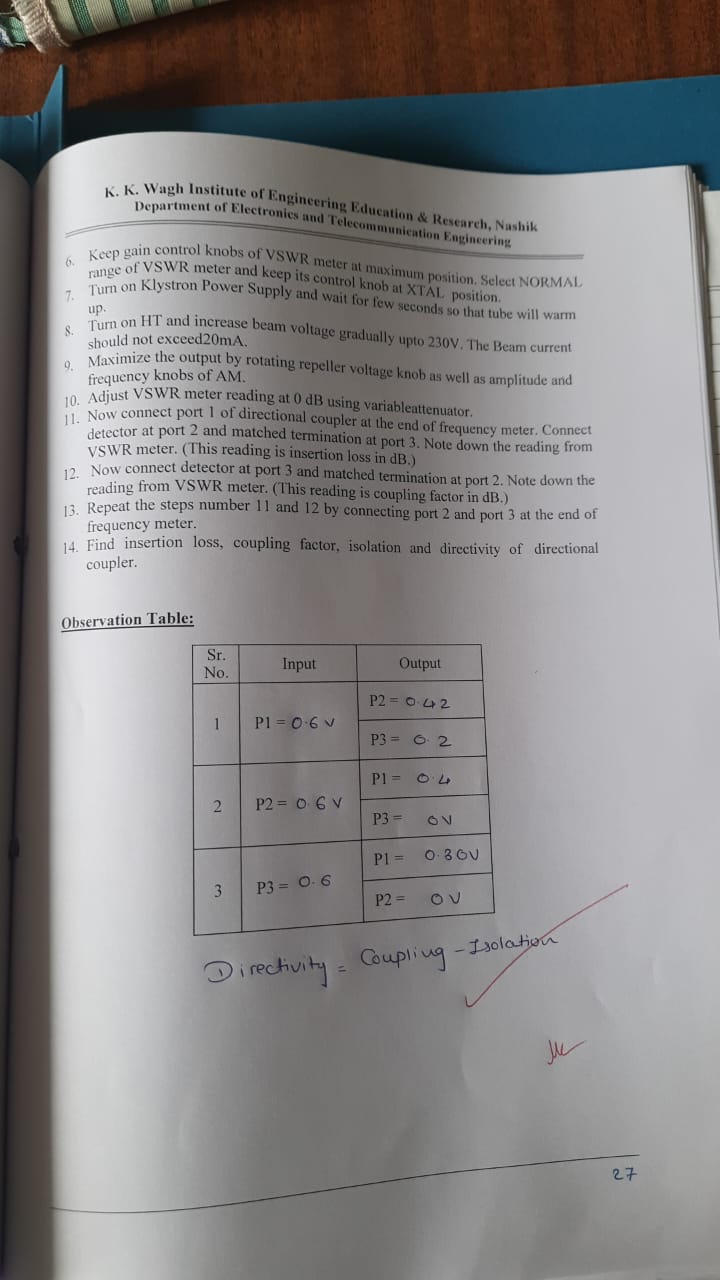 K. K. Wagh Institute of Engineering Education & Research, Nashik
Department of Electronics and Telecommunication Engineering
6. Keep gain control knobs of VSWR meter at maximum position. Select NORMAL
range of VSWR meter and keep its control knob at XTAL position.
7. Turn on Klystron Power Supply and wait for few seconds so that tube will warm
up.
8. Turn on HT and increase beam voltage gradually upto 230V. The Beam current
should not exceed20mA.
9. Maximize the output by rotating repeller voltage knob as well as amplitude and
frequency knobs of AM.
10. Adjust VSWR meter reading at 0 dB using variableattenuator.
11. Now connect port 1 of directional coupler at the end of frequency meter. Connect
detector at port 2 and matched termination at port 3. Note down the reading from
VSWR meter. (This reading is insertion loss in dB.)
12. Now connect detector at port 3 and matched termination at port 2. Note down the
reading from VSWR meter. (This reading is coupling factor in dB.)
13. Repeat the steps number 11 and 12 by connecting port 2 and port 3 at the end of
frequency meter.
14. Find insertion loss, coupling factor, isolation and directivity of directional
coupler.
Observation Table:
Sr. No. Input Output
1 P1 = 0.6 V P2 = 0.42
P3 = 0.2
2 P2 = 0.6 V P1 = 0.4
P3 = 0V
3 P3 = 0.6 P1 = 0.30V
P2 = 0V
Directivity = Coupling - Isolation
27